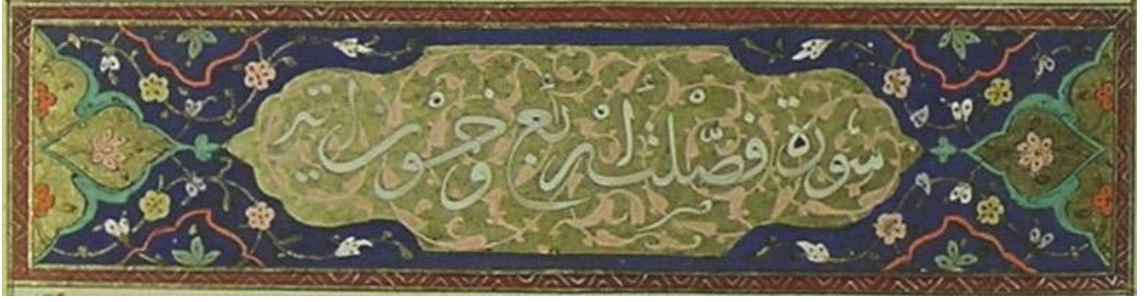 سورة فصّلت أربع وخمسون اية